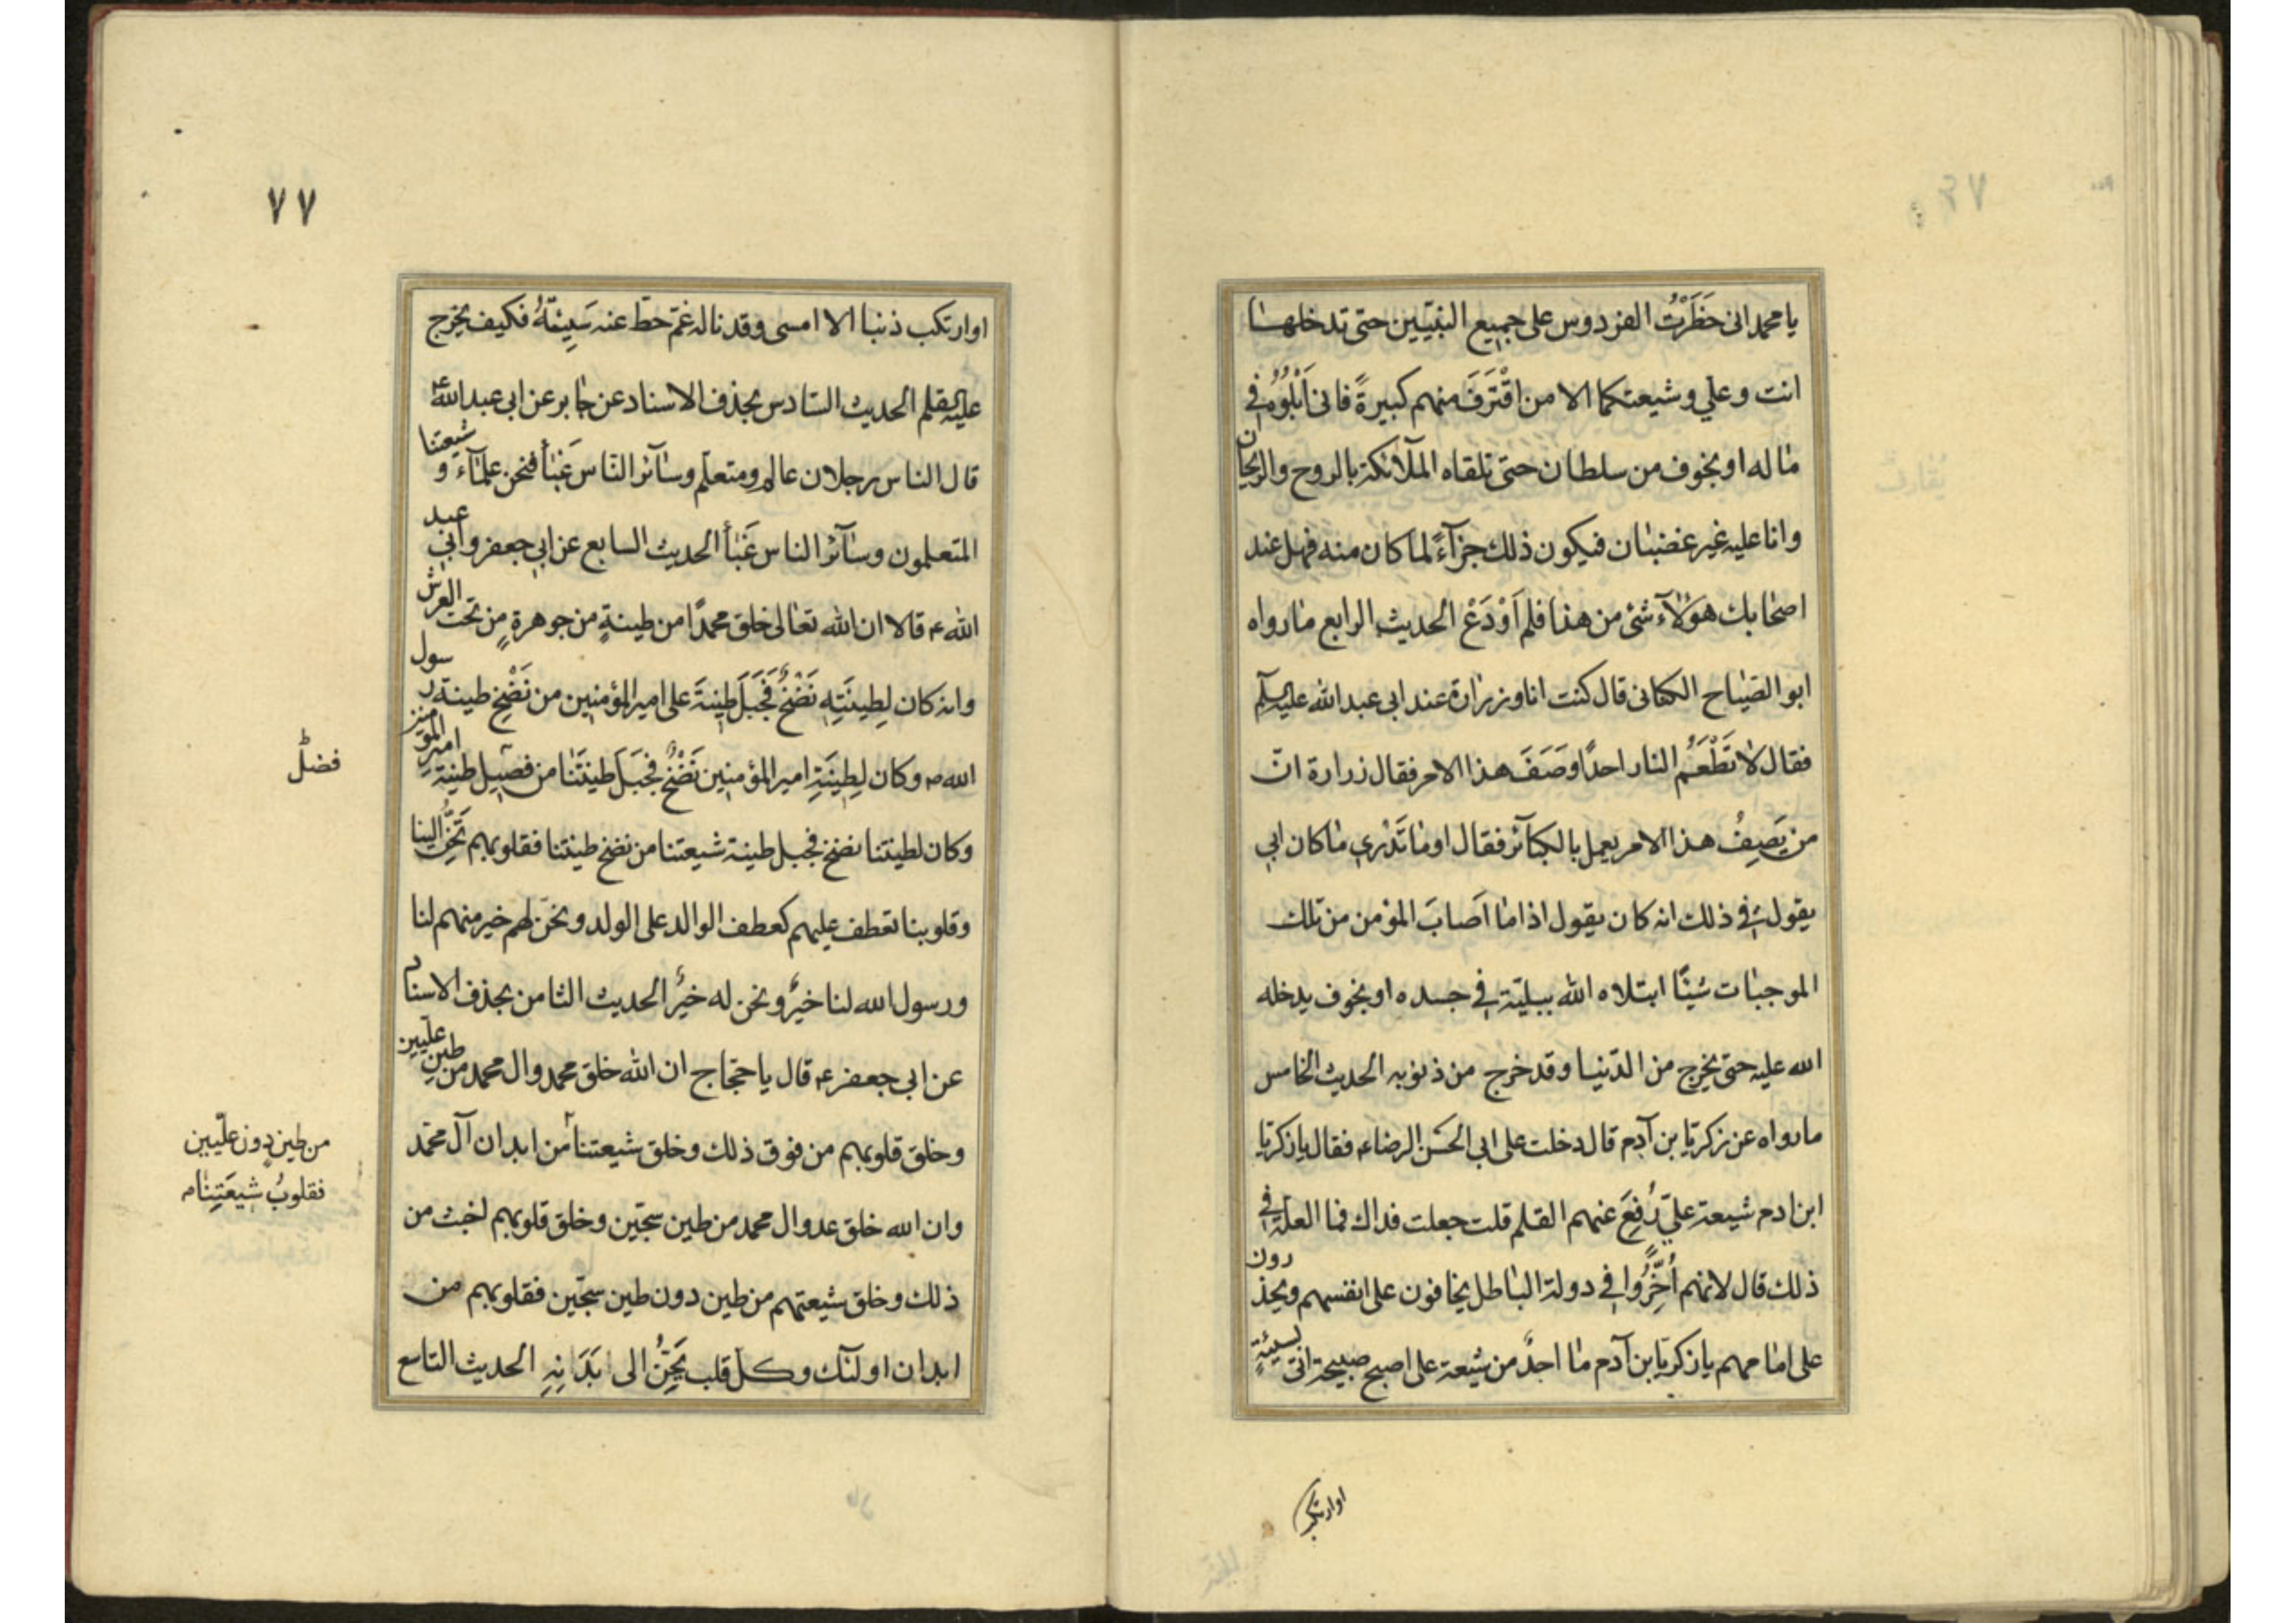 يا محمد انى حَظَرْتُ الفردوس على جميع النبيّين حتى تدخلها
انت وعلي وشيعتكما الا من اقْتَرَفَ منهم كبيرةً فانى اَبْلُوُه في
ماله او بخوف من سلطان حتى تلقاه الملآئكة بالروح والريحان
وانا عليه غير غضبان فيكون ذلك جزآءً لما كان منه فهل عند
اصحابك هؤلآء شئ من هذا فلم اَوْدَعْ الحديث الرابع مارواه
ابو الصّباح الكنانى قال كنت انا وزرارة عند ابى عبد الله عليه السلم
فقال لا تَطْعَمُ النار احدًا وَصَفَ هذا الامر فقال زرارة انّ
من يَصِفُ هذا الامر يعمل بالكبآئر فقال او ما تَدْري ما كان ابي
يقول في ذلك انه كان يقول اذا ما اَصابَ المؤمن من تلك
الموجبات شيئًا ابتلاه الله ببليّة في جسده او بخوف يدخله
الله عليه حتى يخرج من الدّنيا وقد خرج من ذنوبه الحديث الخامس
مارواه عن زكريّا بن آدم قال دخلت على ابى الحَسَن الرضاء فقال يا زكريّا
ابن ادم شيعة عليّ رُفِعَ عنهم القلم قلت جعلت فداك فما العلة في
ذلك قال لانهم أُخِّرُوا في دولة الباطل يخافون على انفسهم ويحذرون
على امامهم يا زكريّا بن آدم ما احدٌ من شيعة على اصبح صبيحة اتى بسيئةٍ
اوارتكب
٧٧
اوارتكب ذنبا الا امسى وقد ناله غمّ حطّ عنه سَيِئَتَهُ فكيف يخرج
عليه القلم الحديث السّادس بحذف الاسناد عن جابر عن ابى عبد الله ع
قال الناس رجلان عالم ومتعلّم وسآئر النّاس غثآء فنحن علمآء و شيعتنا
المتعلمون وسآئر الناس غثآء الحديث السابع عن ابي جعفر وابي عبد
الله ع قالا ان الله تعالى خلق محمدًا من طينةٍ من جوهرةٍ من تحت العرش
وانه كان لِطِينَتِهِ نَضْحٌ فَجَبَلَ طِينَةَ على امير المؤمنين من نَضْحِ طينة رسول
الله ص وكان لِطِينَةِ امير المؤمنين نَضْحٌ فجَبَلَ طينتَنا من فصيل طينة امير المؤمنين
فضل
وكان لطينتنا نضح فجبل طينة شيعتنا من نضح طينتنا فقلوبهم تَحِنُّ الينا
وقلوبنا تعطف عليهم كعطف الوالد على الولد ونحن لهم خير منهم لنا
ورسول الله لنا خيرٌ ونحن له خيرٌ الحديث الثامن بحذف الاسناد
عن ابى جعفر ع قال يا حجّاج ان الله خلق محمد وال محمد من طين علّيين
وخلق قلوبهم من فوق ذلك وخلق شيعتنا من ابدان آل محمّد
من طينٍ دون علّيين
فقلوبُ شيعَتِنا
وان الله خلق عدو ال محمد من طين سجّين وخلق قلوبهم اخبث من
ذلك وخلق شيعتهم من طين دون طين سجّين فقلوبهم من
ابدان اولئك وكل قلب يَحِنُّ الى بَدَنِهِ الحديث التاسع